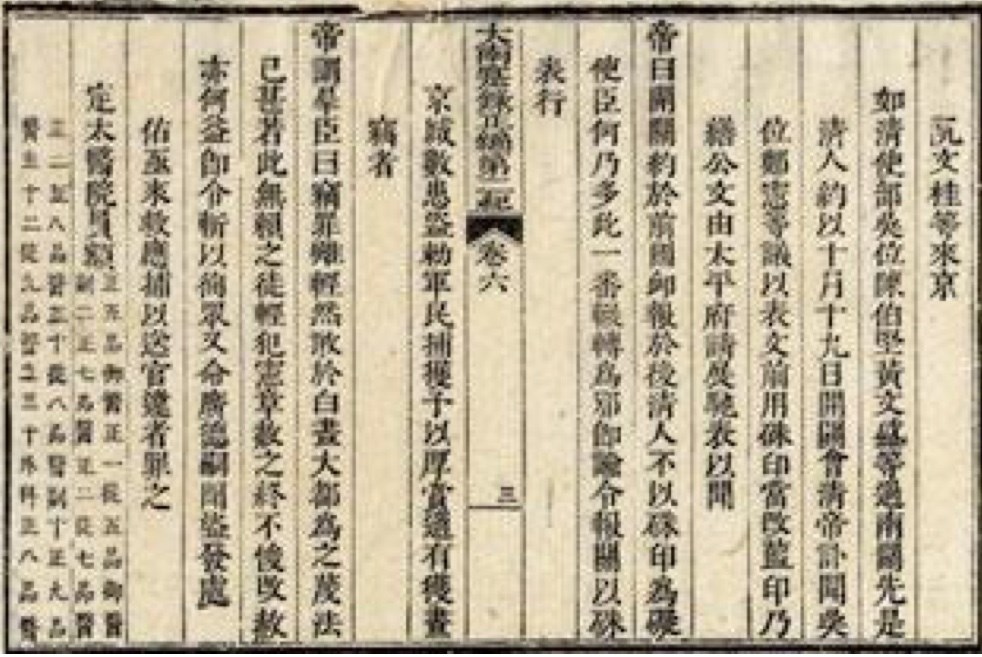 阮文桂等來京
如清使部吳位陳伯堅黃文盛等過南關先是
清人約以十月十九日開關會清帝訃聞吳
位鄭憲等議以表文前用硃印當改藍印乃
繕公文由太平府請展馳表以聞
帝曰開關約於前國卹報於後清人不以硃印為礙
使臣何乃多此一番輾轉為邪即諭令報關以硃
表行
大南寔錄正編第二紀 卷六 三
京城數患盜勅軍民捕獲予以厚賞適有獲晝
竊者
帝謂羣臣曰竊罪雖輕然敢於白晝大都為之蔑法
已甚若此無賴之徒輕犯憲章赦之終不悛改赦
亦何益即令斬以徇眾又命廣德嗣聞盜發處
佑亟來救應捕以送官違者罪之
定太醫院員額 正五品御醫正一從五品御醫
副二正七品醫正二從七品醫
正二正八品醫正十從八品醫副十正九品
醫生十二從九品醫生三十外科正八品醫